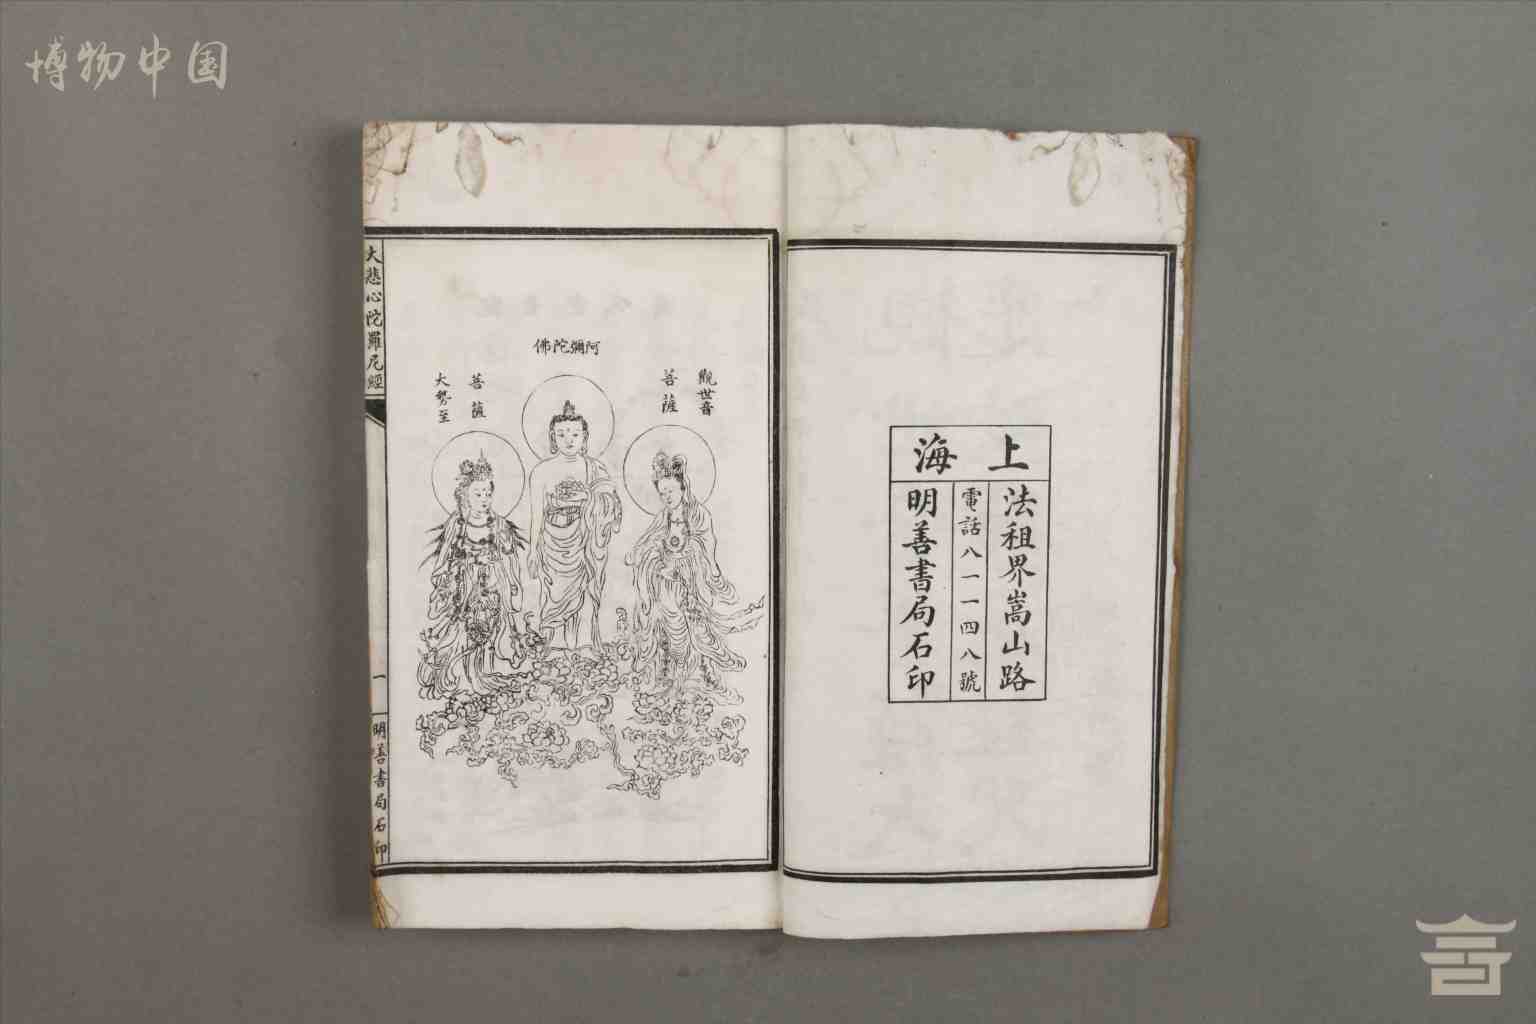 博物中国
上海
法租界嵩山路
電話八一一四八號
明善書局石印
阿彌陀佛
觀世音
菩薩
菩薩
大勢至
大悲心陀羅尼經
一
明善書局石印